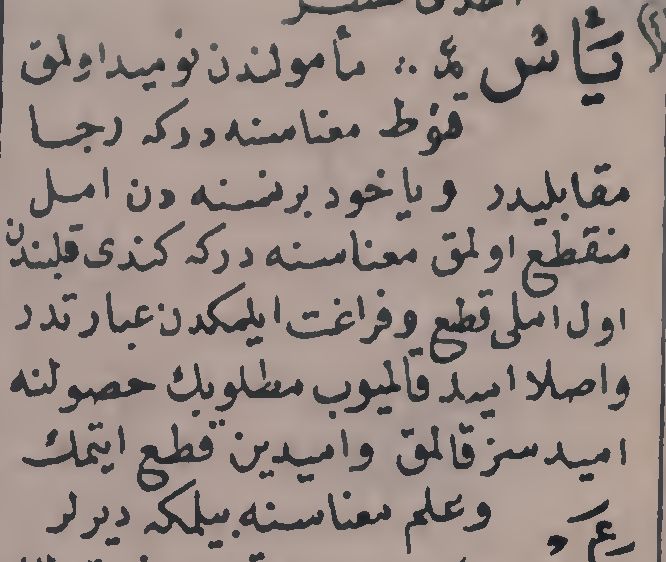 يَأْسْ عم : مأمولندن نوميد اولمق
قنوط معناسنه دركه رجا
مقابليدر و ياخود بر نسنه دن امل
منقطع اولمق معناسنه دركه كندى قلبندن
اول املى قطع و فراغت ايلمكدن عبارتدر
و اصلا اميد قالميوب مطلوبك حصولنه
اميدسز قالمق و اميدين قطع ايتمك
و علم معناسنه بيلمكه ديرلر